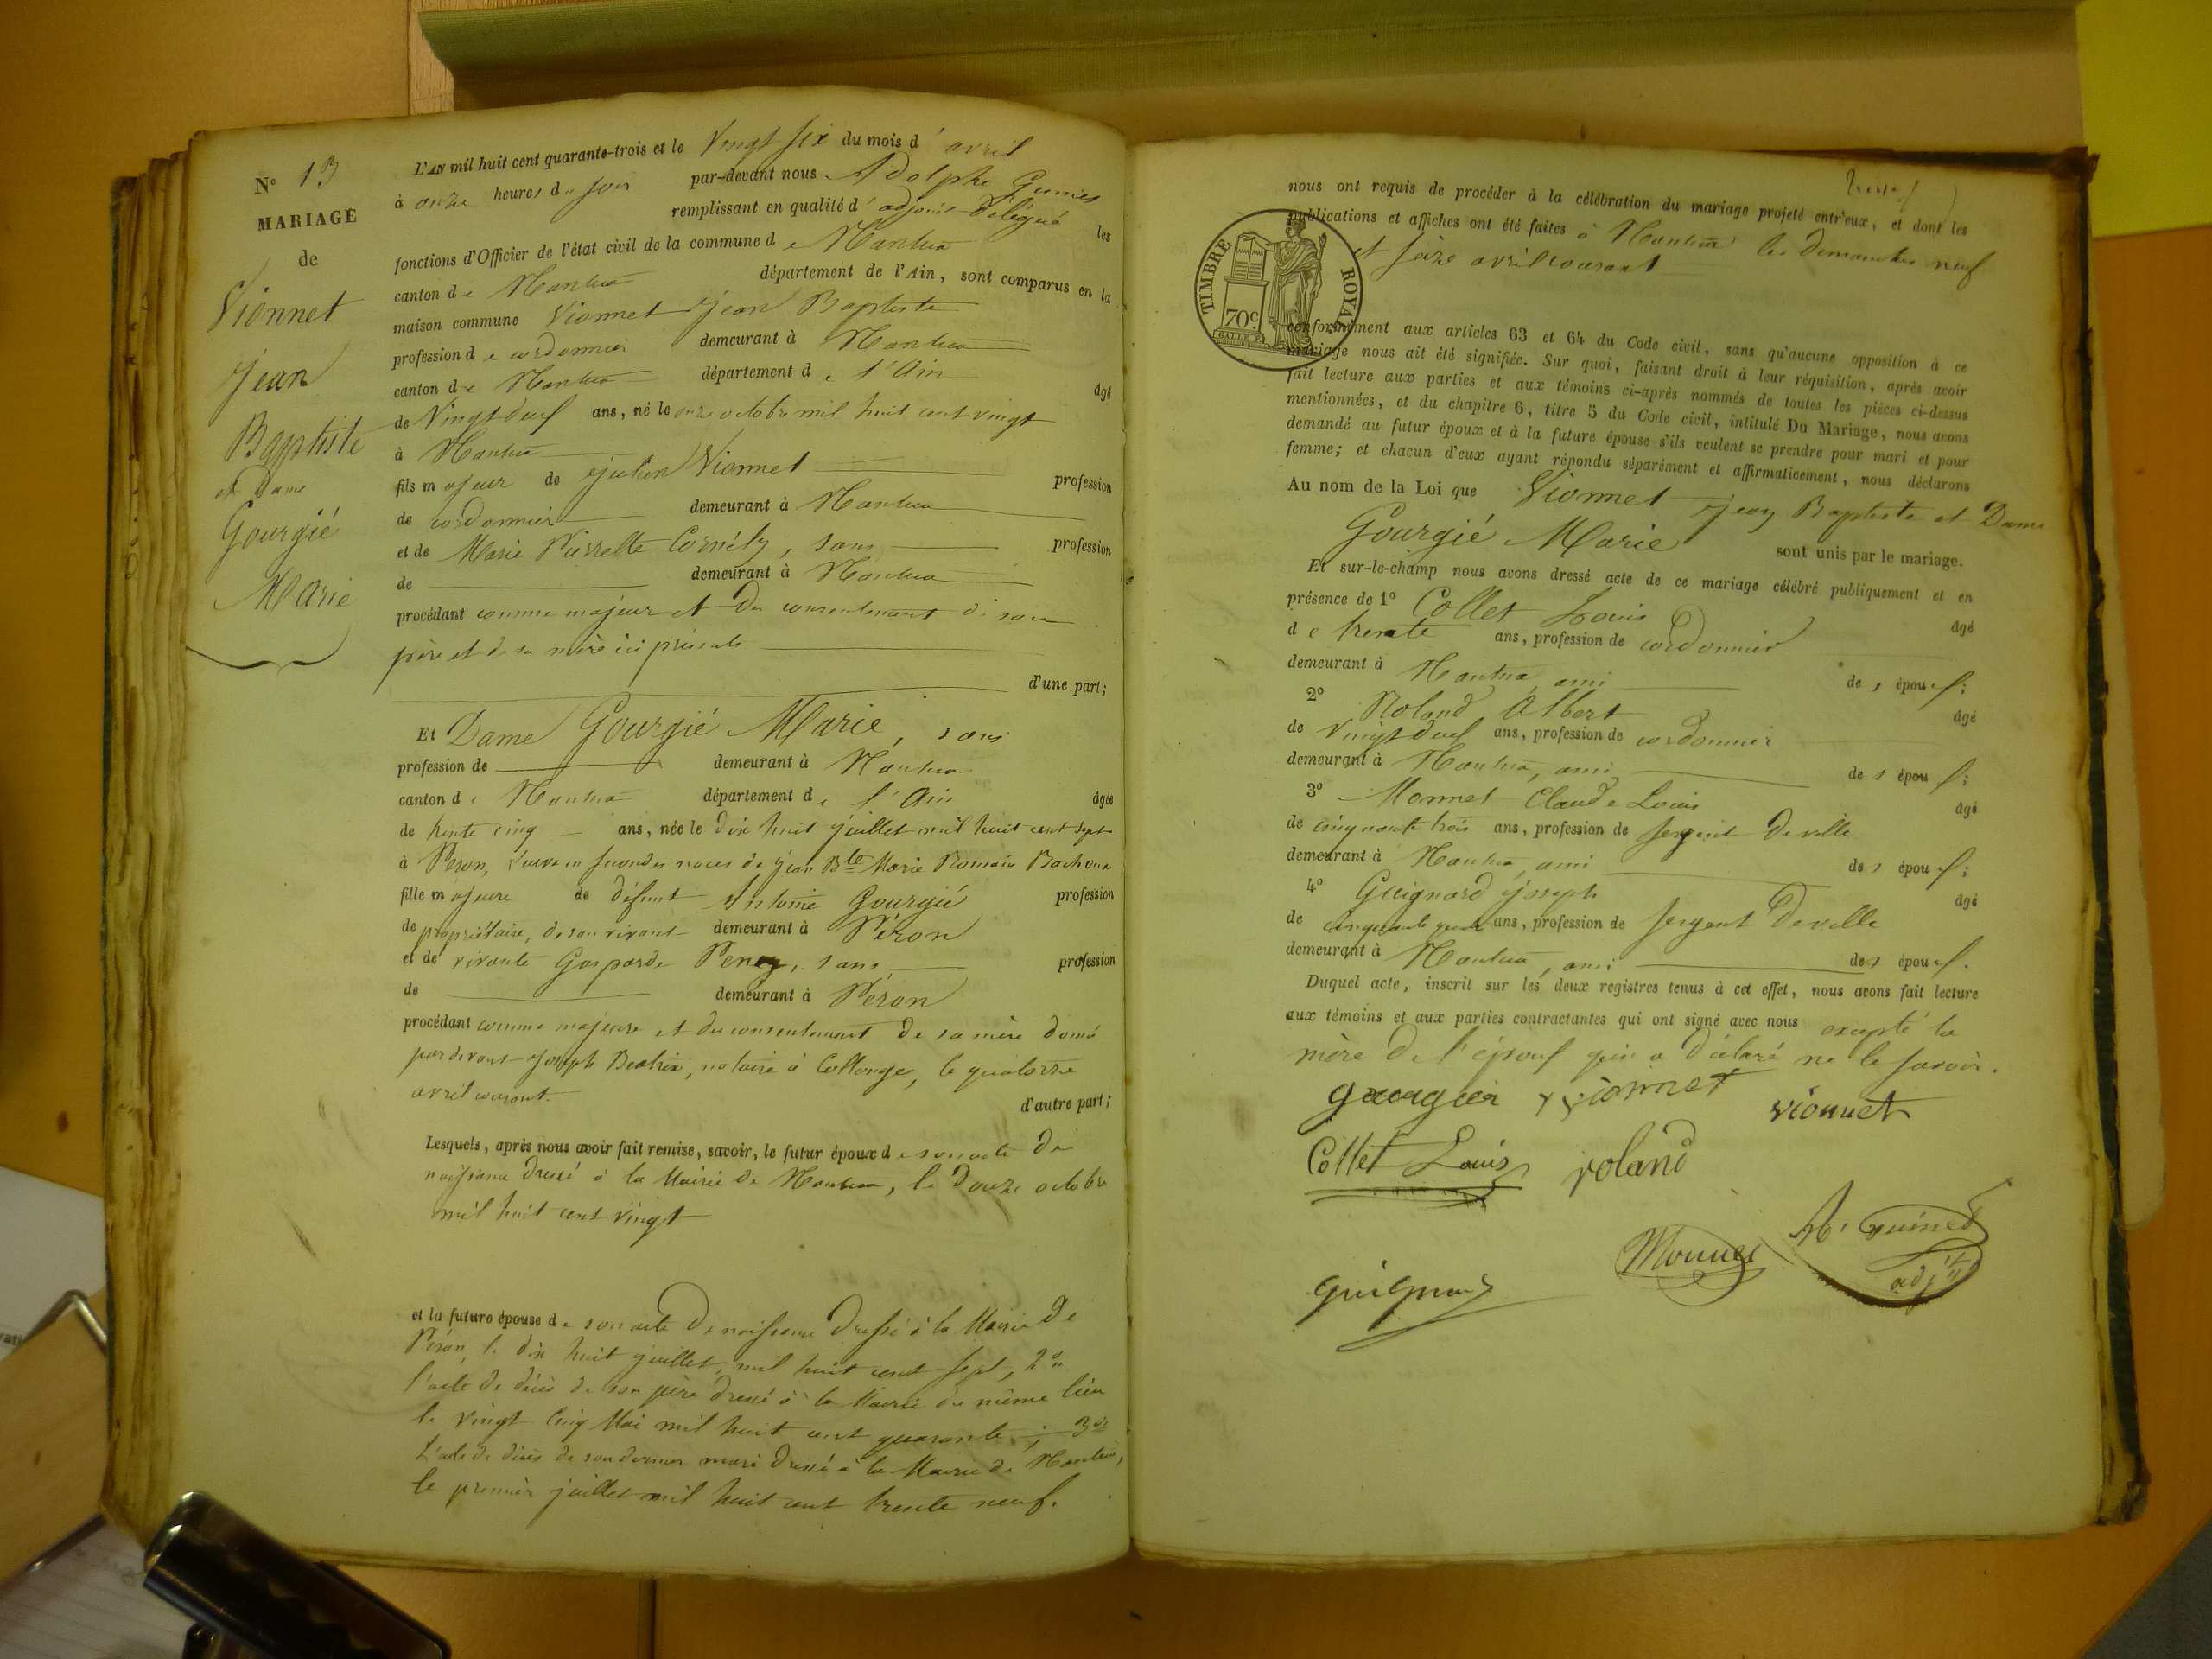 N° 13
MARIAGE
de
Vionnet
Jean
Baptiste
et Dame
Gourgié
Marie
L'AN mil huit cent quarante-trois et le Vingt Six du mois d'avril
à onze heures du soir par-devant nous Adolphe
remplissant en qualité d'adjoint délégué les
fonctions d'Officier de l'état civil de la commune de Nantua
canton de Nantua département de l'Ain, sont comparus en la
maison commune Vionnet Jean Baptiste
profession de cordonnier demeurant à Nantua
canton de Nantua département de l'Ain âgé
de Vingt deux ans, né le onze octobre mil huit cent vingt
à Nantua
fils majeur de Julien Vionnet profession
de cordonnier demeurant à Nantua
et de Marie Pierrette Cornély, sans profession
de demeurant à Nantua
procédant comme majeur et du consentement de son
père et de sa mère ici présents
d'une part;
Et Dame Gourgié Marie, sans
profession de demeurant à Nantua
canton de Nantua département de l'Ain âgée
de trente cinq ans, née le dix huit juillet mil huit cent sept
à Péron, veuve en secondes noces de Jean Bte Marie Romain
fille majeure de défunt Antoine Gourgié profession
de propriétaire, de son vivant demeurant à Péron
et de vivante Gasparde sans profession
de demeurant à Péron
procédant comme majeure et du consentement de sa mère donné
pardevant Joseph Beatrix, notaire à Collonge, le quatorze
avril courant.
d'autre part;
Lesquels, après nous avoir fait remise, savoir, le futur époux de son acte de
naissance dressé à la Mairie de Nantua, le douze octobre
mil huit cent vingt
et la future épouse de son acte de naissance dressé à la Mairie de
Péron, le dix huit juillet, mil huit cent sept, 2°
l'acte de décès de son père dressé à la Mairie du même lieu
le vingt cinq Mai mil huit cent quarante; 3°
L'acte de décès de son dernier mari dressé à la Mairie de Nantua,
le premier juillet mil huit cent trente neuf.
nous ont requis de procéder à la célébration du mariage projeté entr'eux, et dont les
publications et affiches ont été faites à Nantua les dimanches neuf
et seize avril courant
TIMBRE ROYAL
70c.
GALLE F.
conformément aux articles 63 et 64 du Code civil, sans qu'aucune opposition à ce
mariage nous ait été signifiée. Sur quoi, faisant droit à leur réquisition, après avoir
fait lecture aux parties et aux témoins ci-après nommés de toutes les pièces ci-dessus
mentionnées, et du chapitre 6, titre 5 du Code civil, intitulé Du Mariage, nous avons
demandé au futur époux et à la future épouse s'ils veulent se prendre pour mari et pour
femme; et chacun d'eux ayant répondu séparément et affirmativement, nous déclarons
Au nom de la Loi que Vionnet Jean Baptiste et Dame
Gourgié Marie sont unis par le mariage.
Et sur-le-champ nous avons dressé acte de ce mariage célébré publiquement et en
présence de 1° Collet Louis âgé
de trente ans, profession de cordonnier
demeurant à Nantua, ami des époux;
2° Roland Albert âgé
de Vingt deux ans, profession de cordonnier
demeurant à Nantua, ami des époux;
3° Monnet Claude Louis âgé
de cinquante trois ans, profession de sergent de ville
demeurant à Nantua, ami des époux;
4° Guignard Joseph âgé
de cinquante ans, profession de sergent de ville
demeurant à Nantua, ami des époux.
Duquel acte, inscrit sur les deux registres tenus à cet effet, nous avons fait lecture
aux témoins et aux parties contractantes qui ont signé avec nous excepté la
mère de l'époux qui a déclaré ne le savoir.
vionnet
vionnet
Collet Louis
roland
Monnet
adjt
guignard